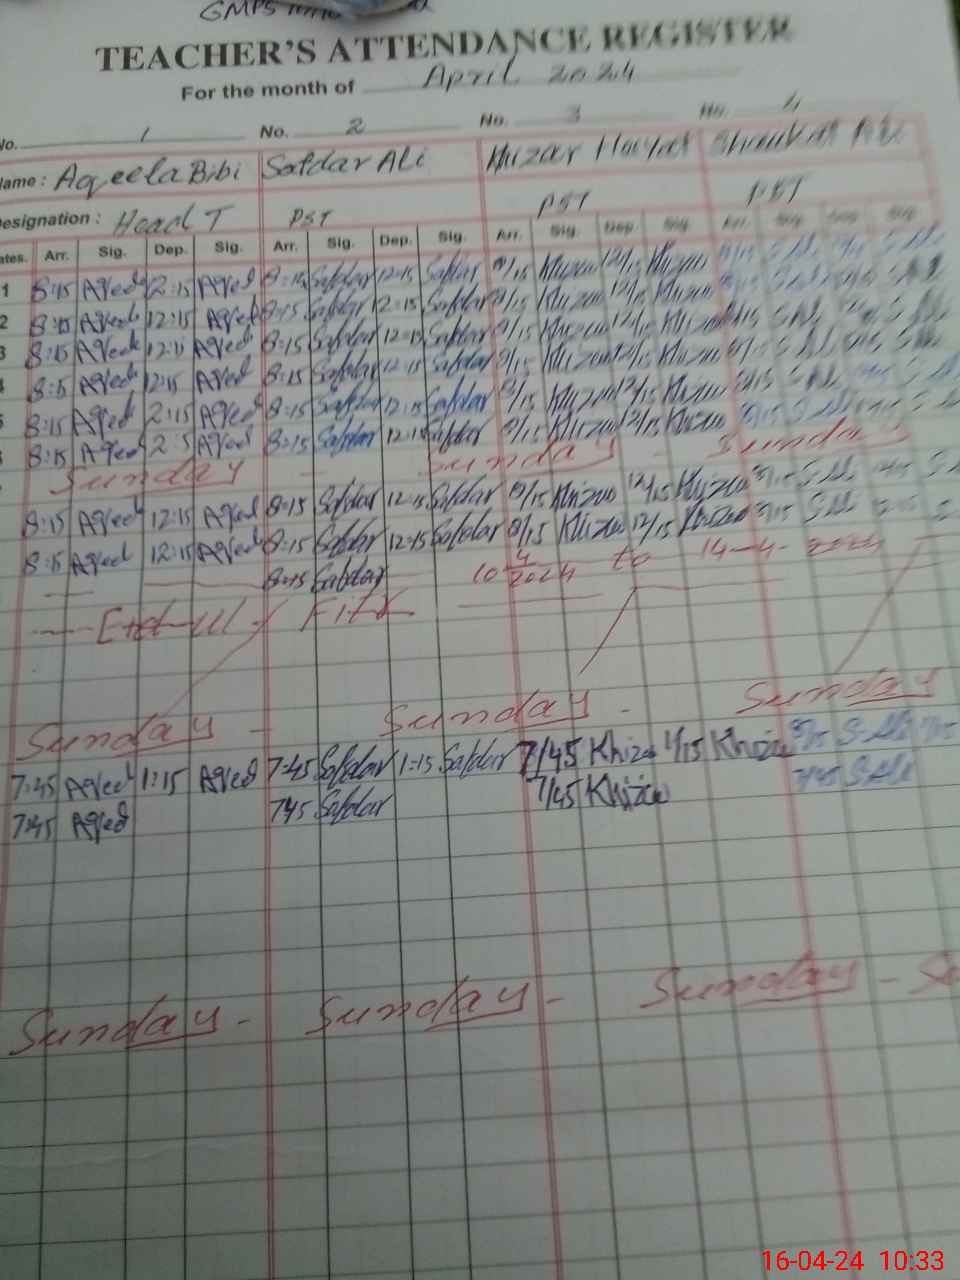 GMPS
TEACHER'S ATTENDANCE REGISTER
For the month of April 2024
No. 1 No. 2 No. 3 No. 4
Name: Aqeela Bibi Safdar Ali Khizar Hayat Shoukat Ali
Designation: Head T PST PST PST
Dates. Arr. Sig. Dep. Sig. Arr. Sig. Dep. Sig. Arr. Sig. Dep. Sig. Arr. Sig. Dep. Sig.
1 8:15 Aqeel 12:15 Aqeel 8:15 Safdar 12:15 Safdar 8/15 Khizar 12/15 Khizar 8/15 S.Ali S.Ali
2 8:15 Aqeel 12:15 Aqeel 8:15 Safdar 12:15 Safdar 8/15 Khizar 12/15 Khizar S.Ali S.Ali
3 8:15 Aqeel 12:15 Aqeel 8:15 Safdar 12:15 Safdar 8/15 Khizar 12/15 Khizar S.Ali S.Ali
4 8:15 Aqeel 12:15 Aqeel 8:15 Safdar 12:15 Safdar 8/15 Khizar 12/15 Khizar S.Ali S.Ali
5 8:15 Aqeel 2:15 Aqeel 8:15 Safdar 12:15 Safdar 8/15 Khizar 12/15 Khizar 8/15 S.Ali
8:15 Aqeel 2:5 Aqeel 8:15 Safdar 12:15 Safdar 8/15 Khizar 12/15 Khizar 8/15 S.Ali
Sunday - Sunday - Sunday
8:15 Aqeel 12:15 Aqeel 8:15 Safdar 12:15 Safdar 8/15 Khizar 12/15 Khizar 8/15 S.Ali
8:15 Aqeel 12:15 Aqeel 8:15 Safdar 12:15 Safdar 8/15 Khizar 12/15 Khizar 8/15 S.Ali
8:15 Safdar 10 4/2024 to 14-4-2024
Eid-ul-Fitr
Sunday - Sunday - Sunday
7:45 Aqeel 1:15 Aqeel 7:45 Safdar 1:15 Safdar 7/45 Khizar 1/15 Khizar S.Ali 1/15
7:45 Aqeel 745 Safdar 7/45 Khizar 7/45 S.Ali
Sunday - Sunday - Sunday -
16-04-24 10:33